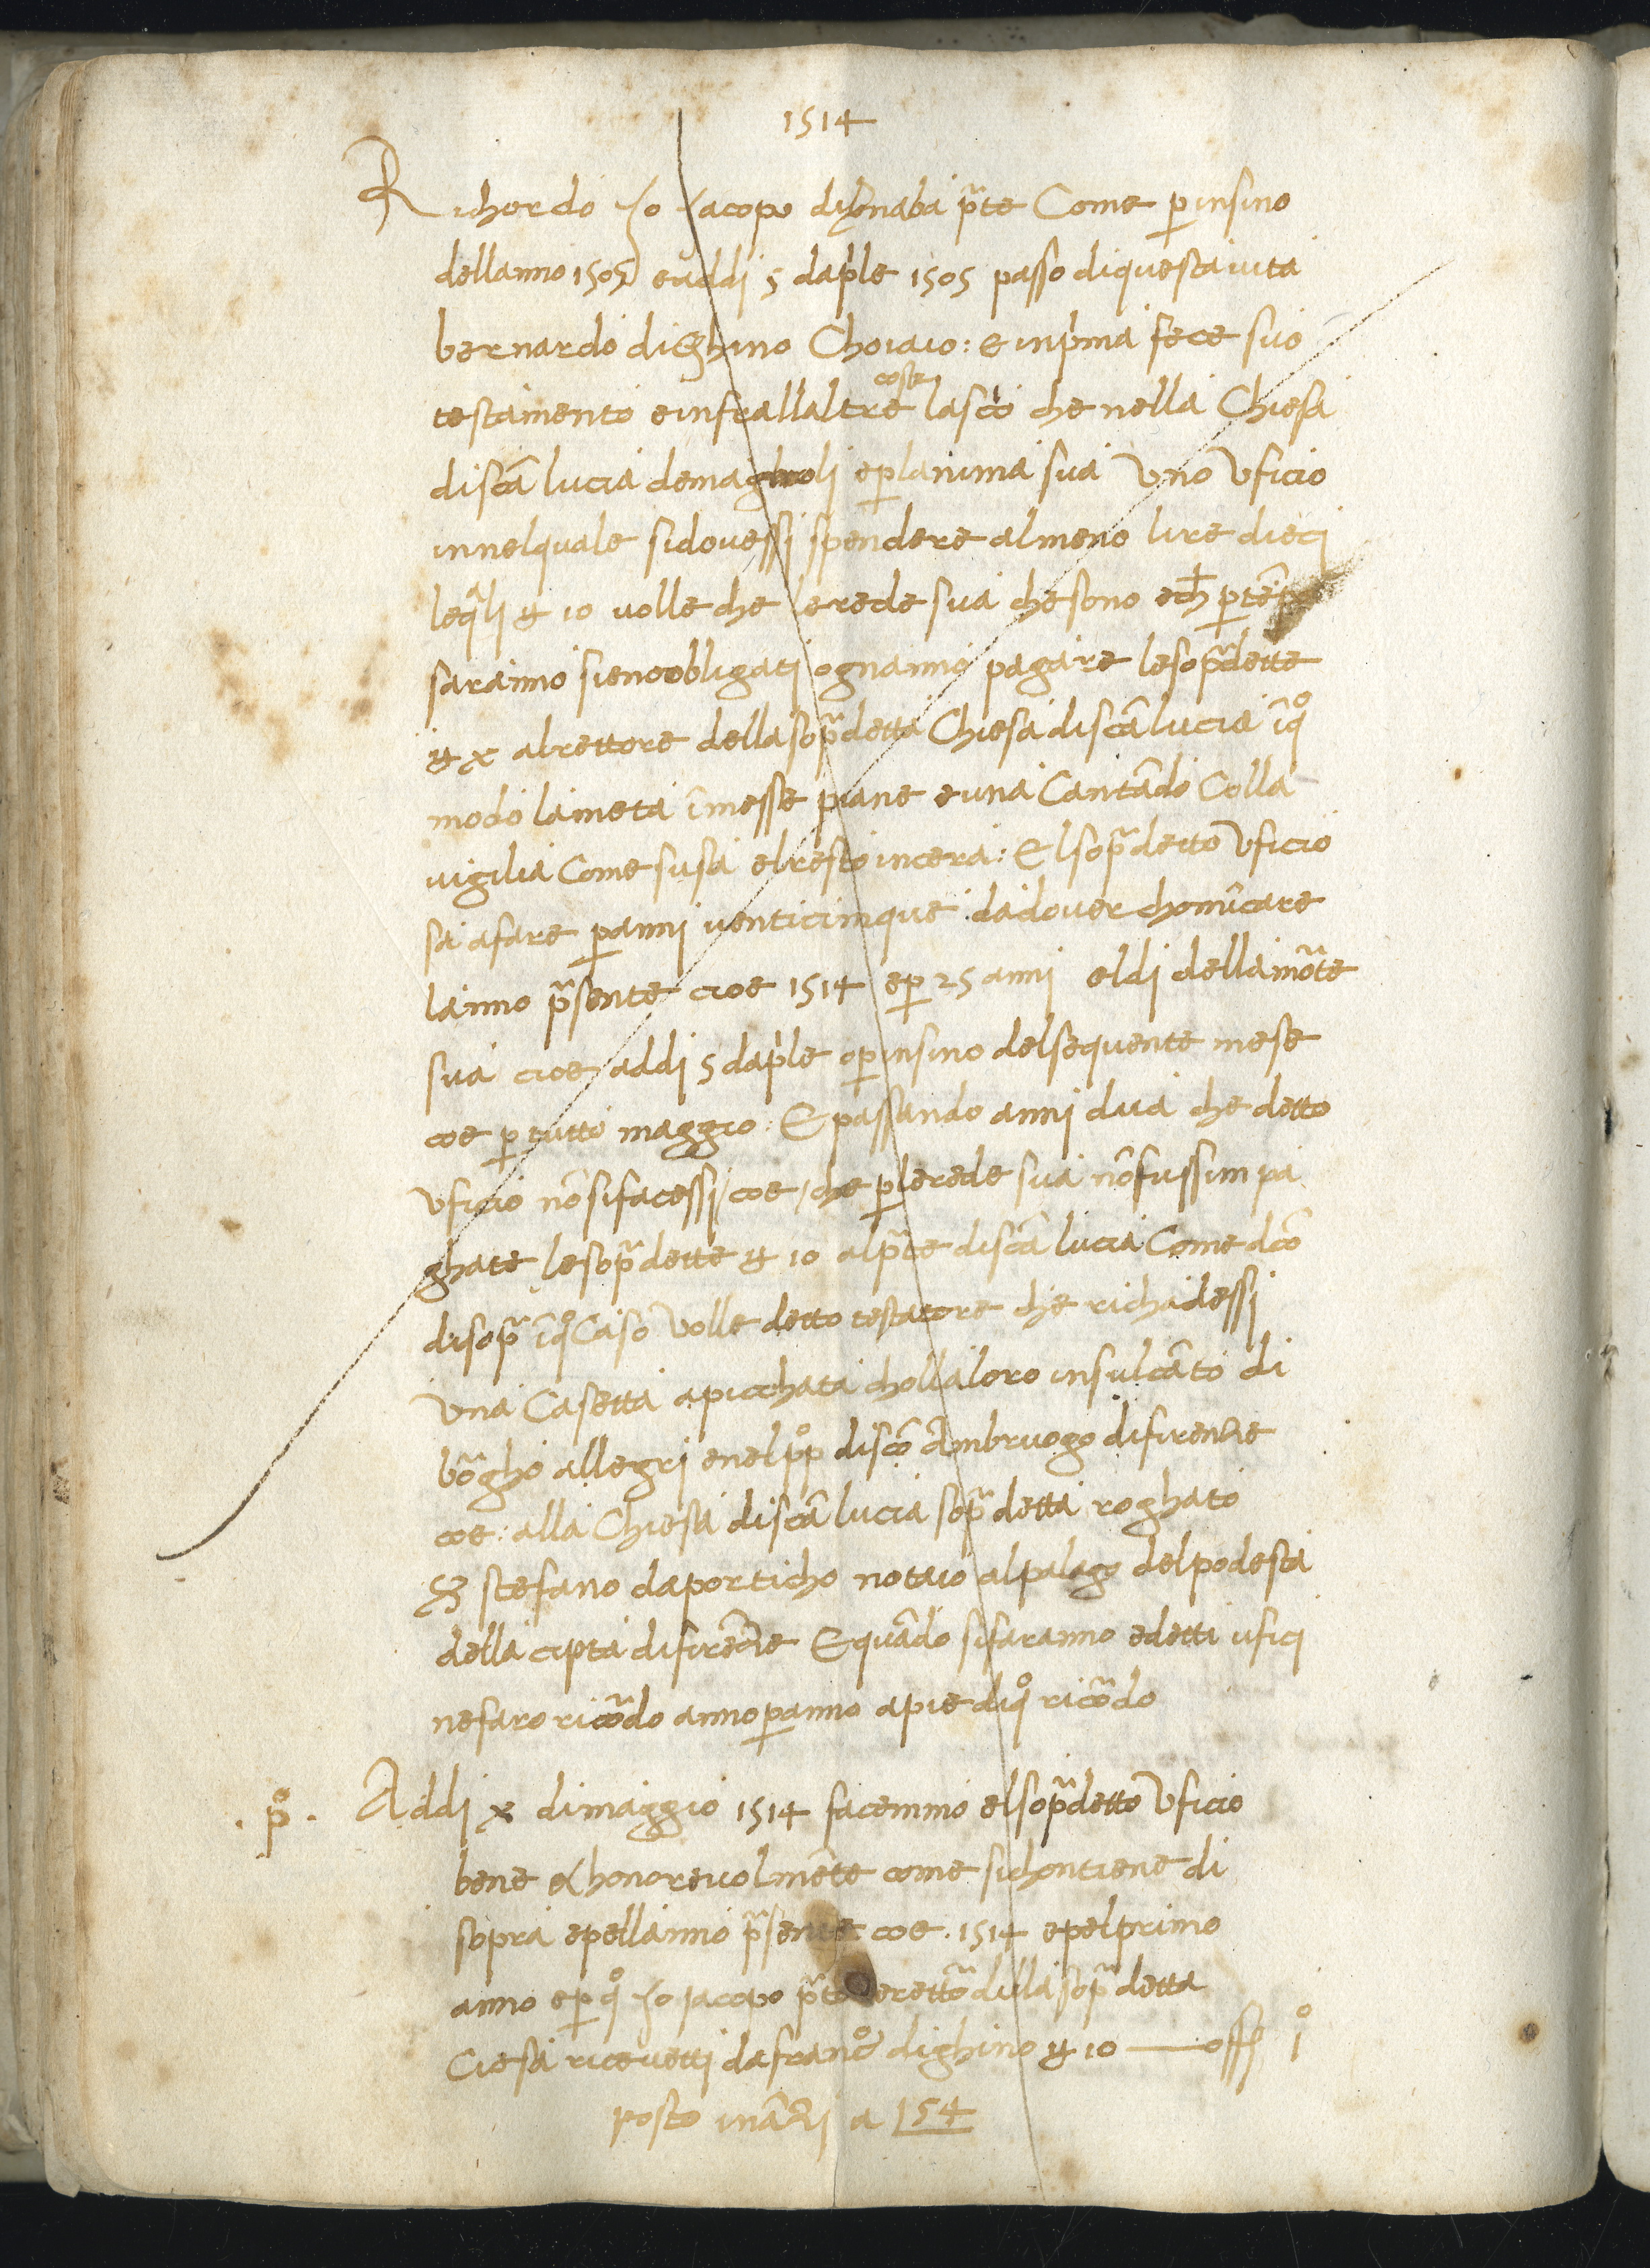 1514
Richordo Io Iacopo di bnaba prẽte Come p insino
dellanno 1505 e addi 5 daple 1505 passo di questa iuta
bernardo di Ghino Choiaio: e inpima fece suo
testamento e infrallaltre cose lascio che nella Chiesa
di scã lucia de magnoli e p lanima sua Uno Uficio
innelquale si dovessi spendere almeno lire dieci
leqli ꝉ 10 volle che lerede sua che sono e ch p te
saranno sieno obbligati ognanno pagare le sopadette
ꝉ x al rettore della sopadetta Chiesa di scã lucia ĩ qo
modo la meta ĩ messe piane e una Cantãdo Colla
vigilia Come susa el resto in cera: El sopadetto Uficio
sa a fare p anni venticinque da dover chomĩcare
lanno psente cioe 1514 e p 25 anni el di della mote
sua cioe addi 5 daple o p insino del sequente mese
coe p tutto maggio: E passando anni dua che detto
Uficio nõ si facessi / coe / che p lerede sua nõ fussim pa
ghate le sopadette ꝉ 10 al pte di scã lucia Come dcõ
di sopa ĩ qo Caso Volle detto testatore che richadessi
Una Casetta apicchata cholla loro in sul cãto di
bõgho allegri e nel pop di scõ Ambruogo di firenze
coe: alla Chiesa di scã lucia sopa detta roghato
S stefano da porticho notaio al palago del podesta
della cipta di firẽze E quãdo si faranno e detti ufici
ne faro ricõdo anno p anno a pie di qo ricõdo
. po . Addi x di maggio 1514 facemmo el sopadetto Uficio
bene & honorevolmẽte come si chontiene di
sopra e pellanno psente coe . 1514 e pel primo
anno e p qo Io Iacopo pte e rettõ della sopa detta
Ciesa ricevetti da franco di ghino ꝉ 10 — off 1o
Posto inãzi a 154